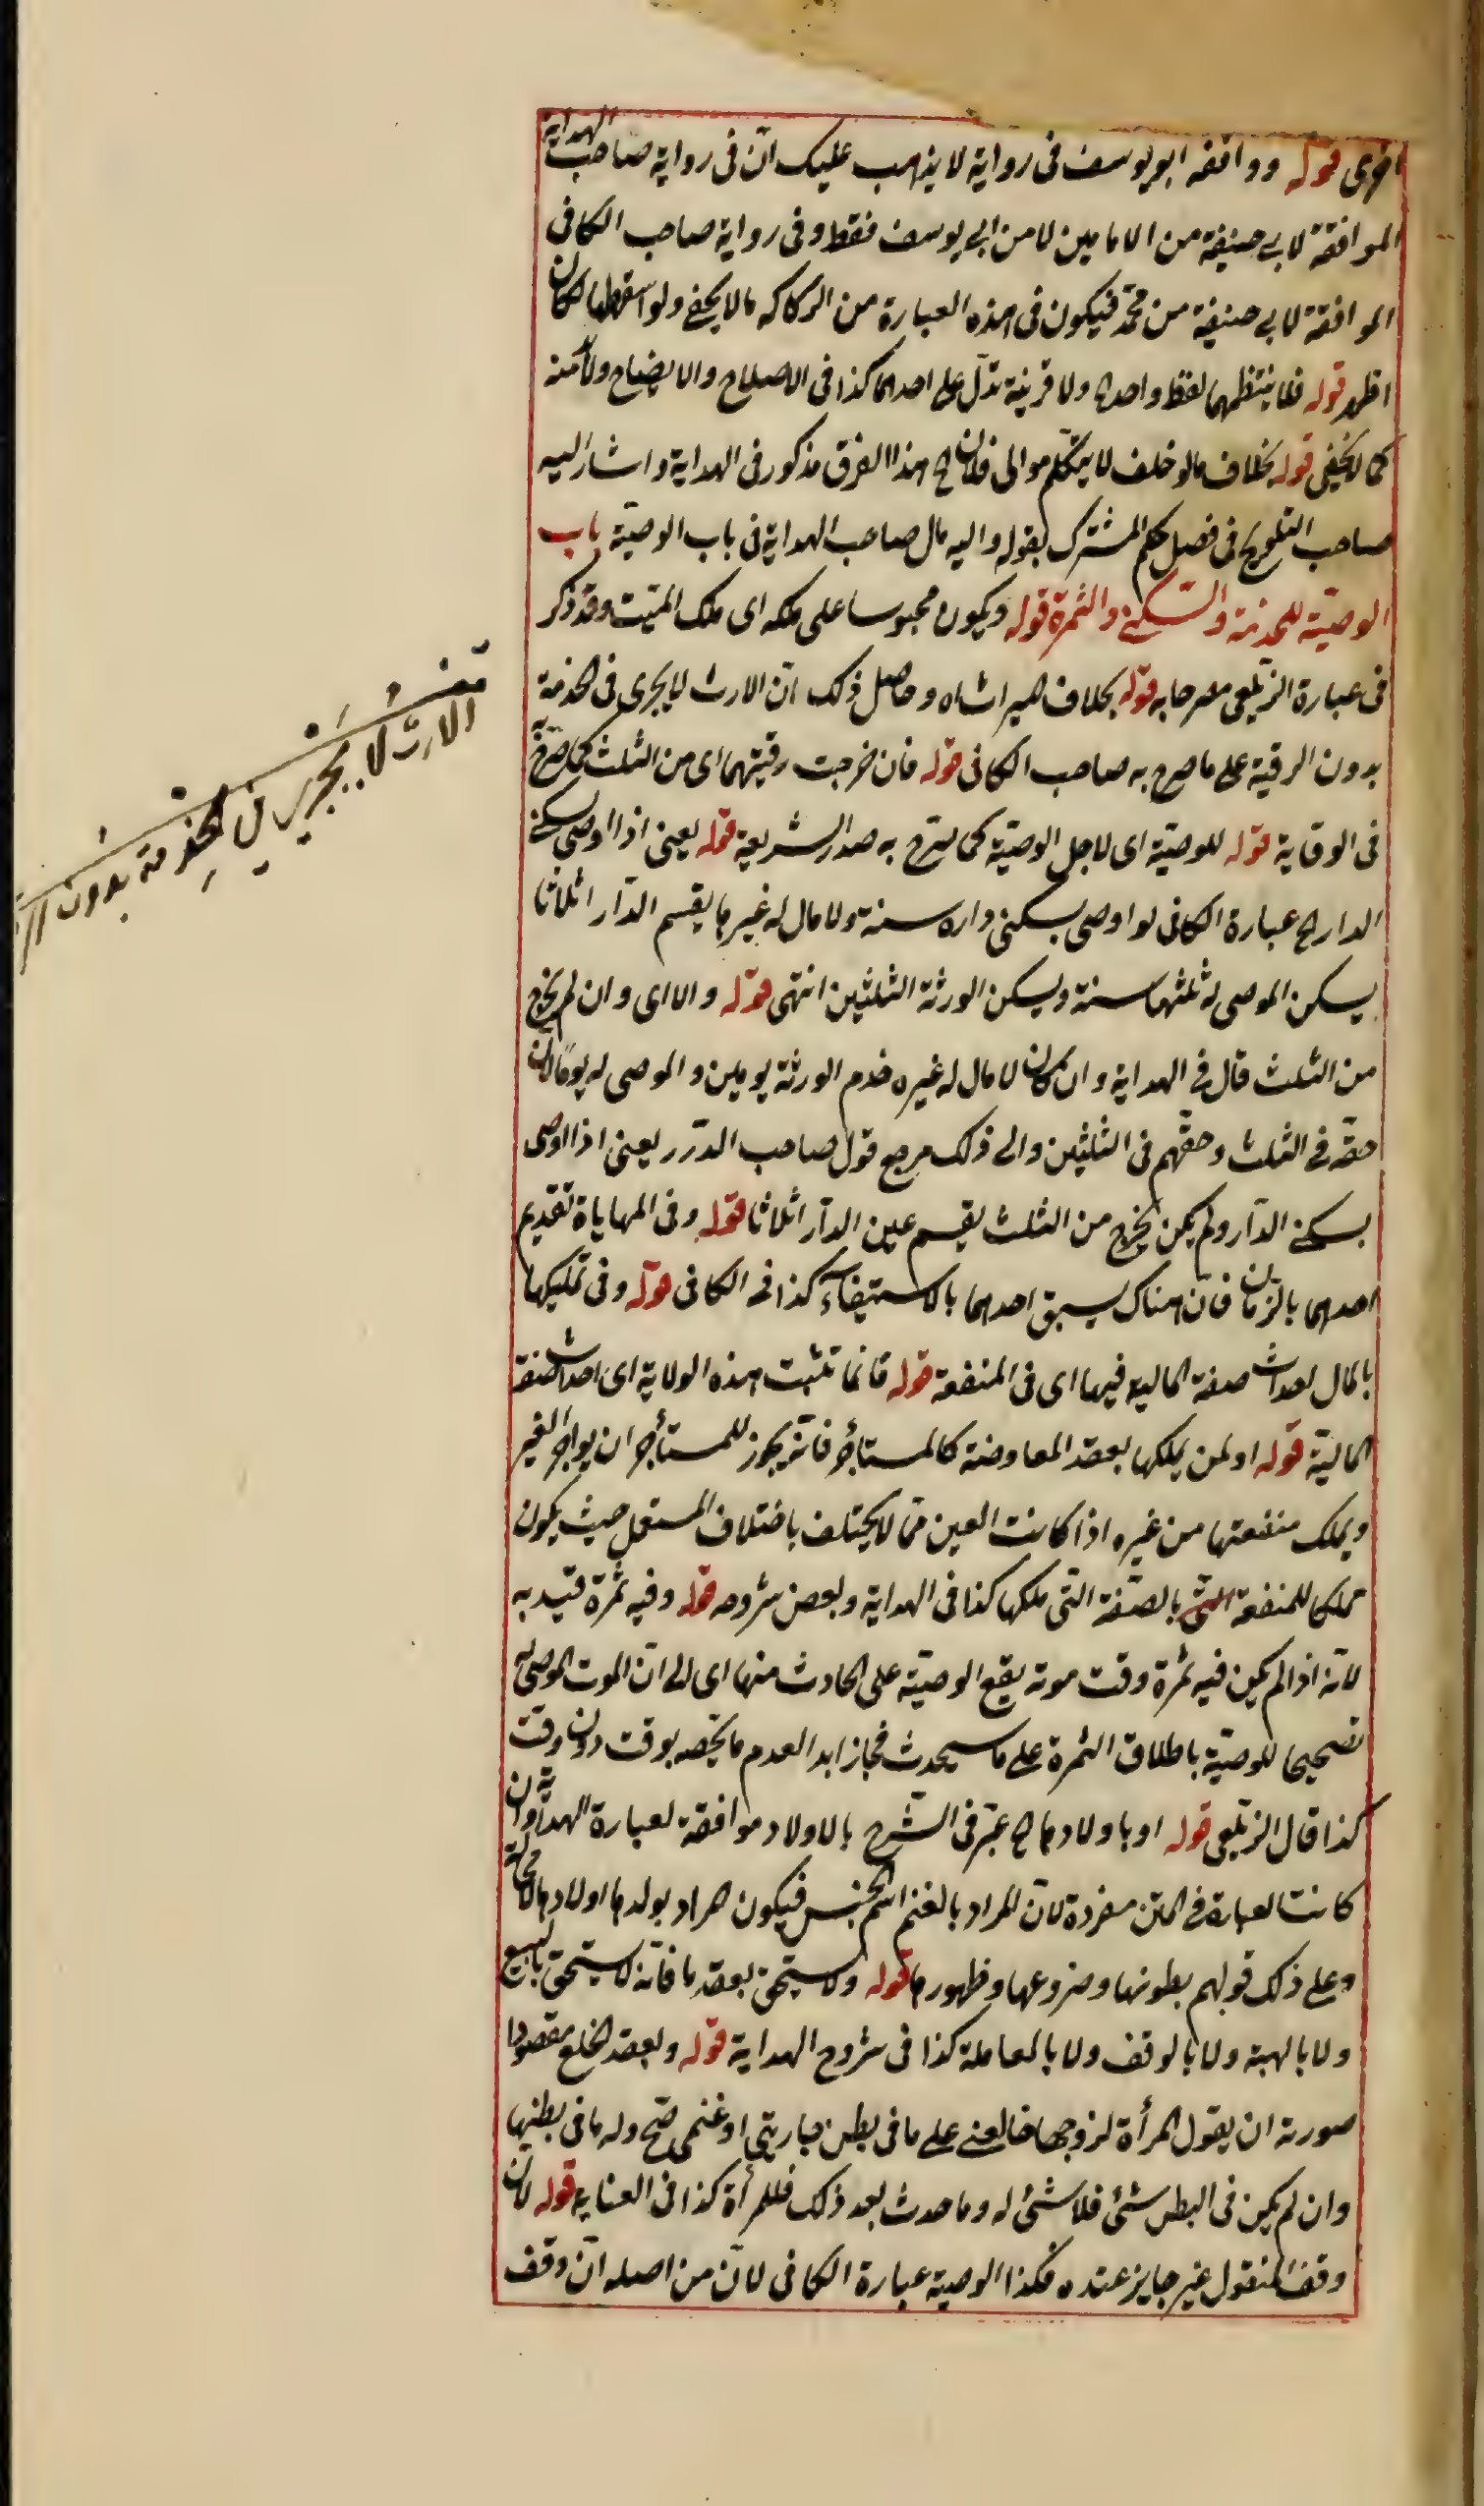 اخرى قوله ووافقه ابو يوسف فى رواية لا يذهب عليك انّ فى رواية صاحب الهداية
الموافقة لابى حنيفة من الامامين لا من ابى يوسف فقط وفى رواية صاحب الكافى
الموافقة لابى حنيفة من محمّد فيكون فى هذه العبارة من الركاكه ما لا يخفى ولو اسقطها لكان
اظهر قوله فلا ينتظمهما لفظ واحد ولا قرينة تدلّ على احدهما كذا فى الاصلاح والايضاح ولا منه
كما لا يخفى قوله بخلاف ما لو حلف لا يتكلّم موالى فلان ح هذا الفرق مذكور فى الهداية واشار اليه
صاحب التلويح فى فصل حكم المشترك بقوله واليه مال صاحب الهداية فى باب الوصيّة باب
الوصيّة للخدمة والسّكنى والثمرة قوله ويكون محبوسا على ملكه اى ملك الميّت وقد ذكر
فى عبارة الزّيلعى مصرحا به قوله بخلاف الميراث اه وحاصل ذلك انّ الارث لا يجرى فى الخدمة
بدون الرقبة على ما صرح به صاحب الكافى قوله فان خرجت رقبتهما اى من الثلث كما صرّح به
فى الوقاية قوله للوصيّة اى لاجل الوصيّة كما صرّح به صدر الشريعة قوله يعنى اذا اوصى بسكنى
الدار ح عبارة الكافى لو اوصى بسكنى داره سنة ولا مال له غيرها يقسم الدّار اثلاثا
يسكن الموصى له ثلثها سنة ويسكن الورثة الثلثين انتهى قوله والا اى وان لم يخرج
من الثلث قال فى الهداية وان كان لا مال له غيره خدم الورثة يومين والموصى له يوما لان
حقّه فى الثلث وحقّهم فى الثلثين والى ذلك مرجع قول صاحب الدّرر يعنى اذا اوصى
بسكنى الدّار ولم يكن يخرج من الثلث يقسم عين الدّار اثلاثا قوله وفى المهاياة تقديم
احدهما بالزمان فانّ هناك يسبق احدهما بالاستيفاء كذا فى الكافى قوله وفى تمليكها
بالمال احداث صفة المالية فيها اى فى المنفعة قوله فانما تثبت هذه الولاية اى احداث صفة
الماليّة قوله او لمن يملكها بعقد المعاوضة كالمستأجر فانّه يجوز للمستأجر ان يواجر الغير
ويملك منفعتها من غيره اذا كانت العين ممّا لا يختلف باختلاف المستعمل حيث يكون
مملكا للمنفعة التى بالصّفة التى ملكها كذا فى الهداية وبعض شروحه قوله وفيه ثمرة قيّد به
لانّه اذا لم يكن فيه ثمرة وقت موته يقع الوصيّة على الحادث منها اى الى ان الموت الموصى له
تصحيحا للوصيّة باطلاق الثمرة على ما سيحدث فجاز ابدا لعدم ما يخصّه بوقت دون وقت
كذا قال الزّيلعى قوله او باولادها ح عبّر فى الشّرح بالاولاد موافقة لعبارة الهداية وان
كانت العبارة فى المتن مفردة لانّ المراد بالغنم اسم الجنس فيكون المراد بولدها اولادها لا محالة
وعلى ذلك قولهم بطونها وضروعها وظهورها قوله ولا يستحق بعقد ما فانّه لا يستحق بالبيع
ولا بالهبة ولا بالوقف ولا بالمعاملة كذا فى شروح الهداية قوله وبعقد الخلع مقصودا
صورته ان يقول المرأة لزوجها خالعنى على ما فى بطن جاريتى او غنمى صحّ وله ما فى بطنها
وان لم يكن فى البطن شئ فلا شئ له وما حدث بعد ذلك فللمرأة كذا فى العناية قوله لان
وقف المنقول غير جايز عنده فكذا الوصية عبارة الكافى لانّ من اصله انّ وقف
الارث لا يجرى فى الخدمة بدون